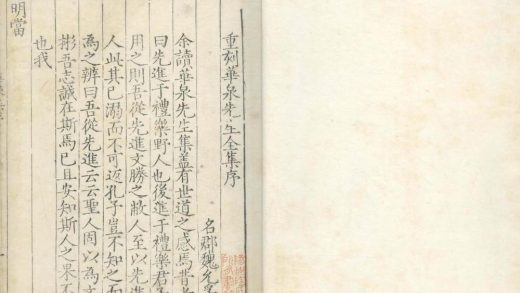 重刻華泉先生全集序
名郡魏允
余讀華泉先生集蓋有世道之感焉昔者
曰先進于禮樂野人也後進于禮樂君子
用之則吾從先進文勝之敝人至以先進
人此其已溺而不可返孔子豈不知之而
為之辨曰吾從先進云云聖人固以為文
彬吾志誠在斯焉已且安知斯人之果不
也我
明當